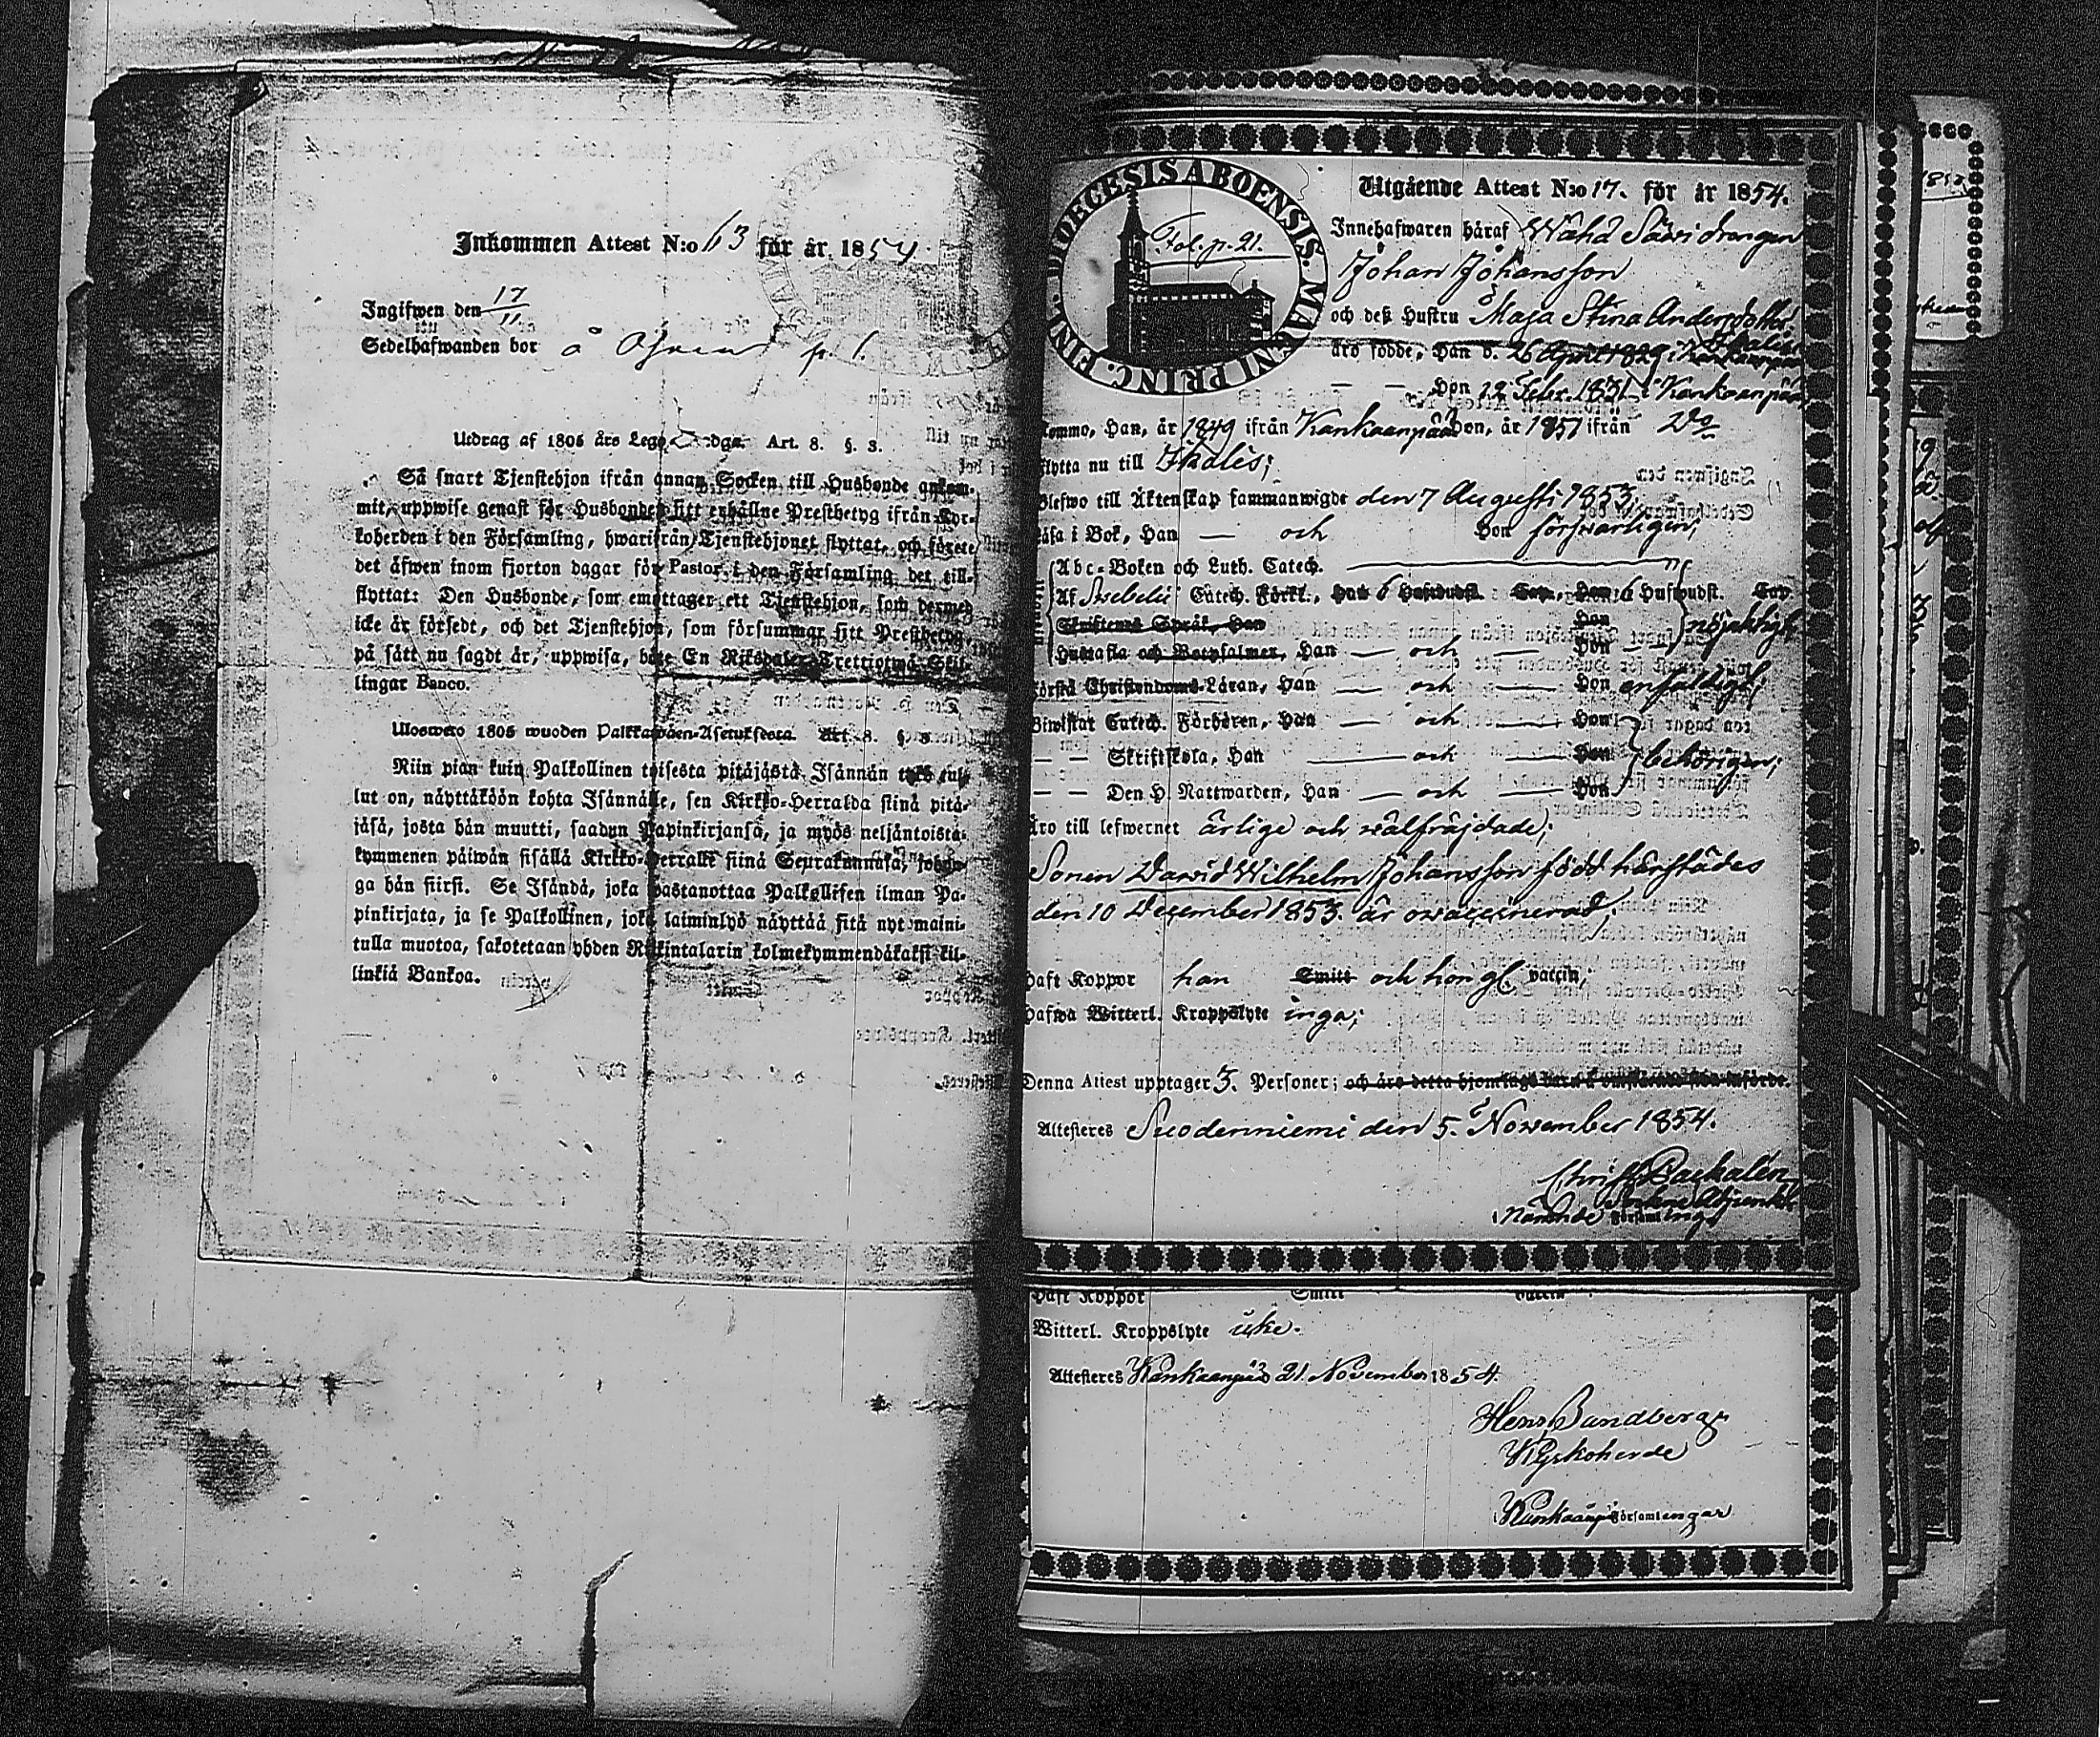 Inkommen Attest N:o 63 för år 1854.
Ingifwen den 17/11
Sedelhafwanden bor å p. 1.
Utdrag af 1805 års Lego Art. 8. §. 3.
Så snart Tjenstehjon ifrån annan Socken till Husbonde ankom-
mit, uppwise genast för Husbonden sitt erhållne Prestbetyg ifrån Kyr-
koherden i den Församling, hwarifrån Tjenstehjonet flyttat, och förete
det äfwen inom fjorton dagar för Pastor i den Församling det till-
flyttat: Den Husbonde, som emottager ett Tjenstehjon, som dermed
icke är försedt, och det Tjenstehjon, som försummar sitt Prestbetyg,
på sätt nu sagdt är, uppwisa, böte En Riksdaler Trettiotwå Skil-
lingar Banco.
Ulosweto 1805 wuoden Palkkawäen-Asetuksesta. Art. 8. §. 3.
Niin pian kuin Palkollinen toisesta pitäjästä Isännän tykö tul-
lut on, näyttäköön kohta Isännälle, sen Kirkko-Herralda siinä pitä-
jäsä, josta hän muutti, saadun Papinkirjansa, ja myös neljäntoista-
kymmenen päiwän sisällä Kirkko-Herralle siinä Seurakunnasa, johon-
ga hän siirsi. Se Isändä, joka wastanottaa Palkollisen ilman Pa-
pinkirjata, ja se Palkollinen, joka laiminlyö näyttää sitä nyt maini-
tulla muotoa, sakotetaan yhden Riikintalarin kolmekymmendäkaksi kil-
linkiä Bankoa.
DIOECESIS ABOENSIS. MAGNI PRINC. FINL.
Fol. p. 21.
Utgående Attest N:o 17. för år 1854.
Innehafwaren häraf Wähä Säwi drängen
Johan Johansson
och deß Hustru Maja Stina Andersdotter
äro födde, Han d. 26 April 1829 i Ikalis
Kankaanpää
— — Hon 12 Febr. 1831 i Kankaanpää
Kommo, Han, år 1849 ifrån Kankaanpää Hon, år 1851 ifrån Do
flytta nu till Ikalis;
Blefwo till Äktenskap sammanwigde den 7 Augusti 1853.
Läsa i Bok, Han — och Hon försvarligen;
Abc-Boken och Luth. Catech.
Af Swebelii Catech. Förkl., Han 6 Hufwudst. Cap., Hon 6 Hufwudst. Cap
Skriftens Språk, Han Hon nöjaktigt
Hustafla och Botpsalmer, Han — och — Hon
Förstå Christendoms-Läran, Han — och — Hon enfäldigt;
Biwistat Catech. Förhören, Han — och — Hon
— — Skriftskola, Han — och — Hon behörigen;
— — Den H. Nattwarden, Han — och — Hon
Äro till lefwernet ärlige och wälfräjdade;
Sonen Dawid Wilhelm Johansson född härstädes
den 10 December 1853. är ovaccinerad;
Haft Koppor han Smitt och hon gl. vaccin;
Hafwa Witterl. Kroppslyte inga;
Denna Attest upptager 3. Personer; och äro detta hjonelags barn å omstående sida införde.
Attesteres Suodenniemi den 5. November 1854.
Christ. Packalén
i nämnde Församling
Haft Koppor Smitt vaccin
Witterl. Kroppslyte icke.
Attesteres Kankaanpää 21. November 1854.
Henr. Sandberg
Kyrkoherde
i Kankaanpää Församlingar